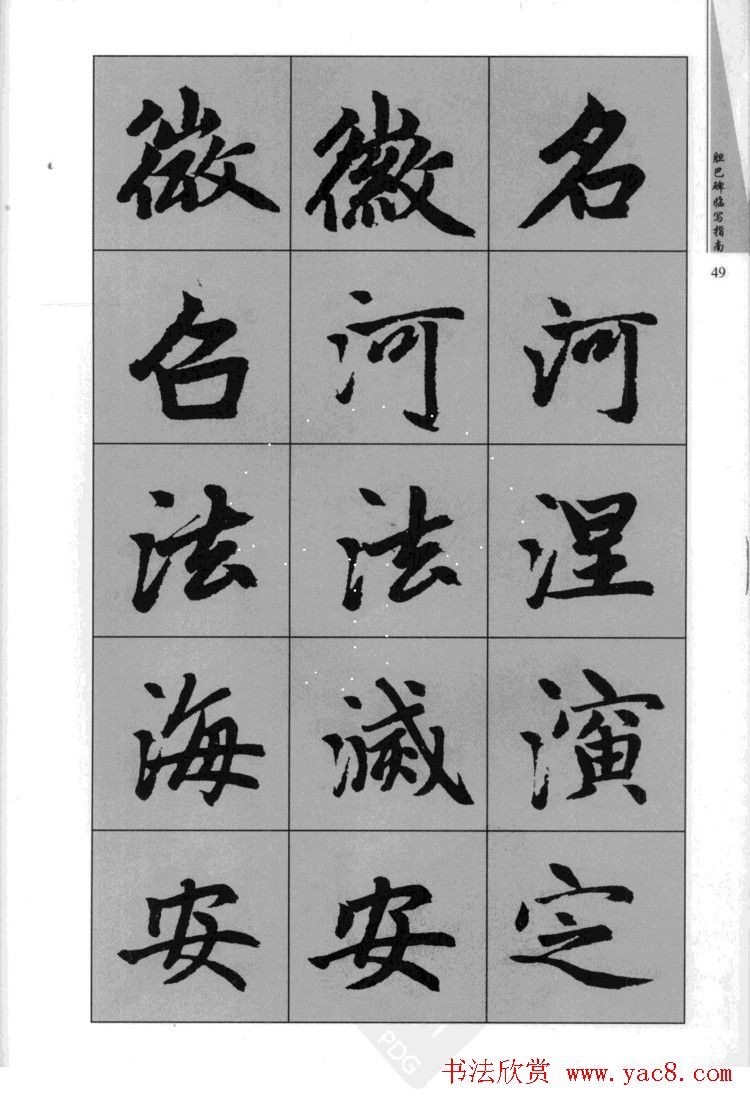 微 徽 名
召 河 河
法 法 涅
海 滅 演
安 安 定
胆巴碑临写指南
49
PDG
书法欣赏 www.yac8.com